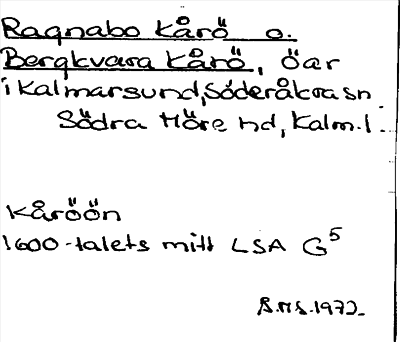 Ragnabo Kårö o.
Bergkvara Kårö, öar
i Kalmarsund, Söderåkra sn.
Södra Möre hd, Kalm.l.
Kåröön
1600-talets mitt LSA G5
B.MS.1972.